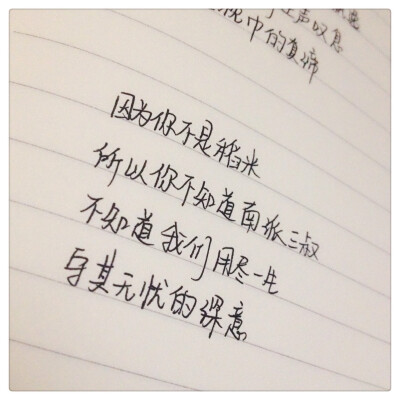 声叹息
的真谛
因为你不是稻米
所以你不知道南派三叔
不知道我们用尽一生
其无忧的深意